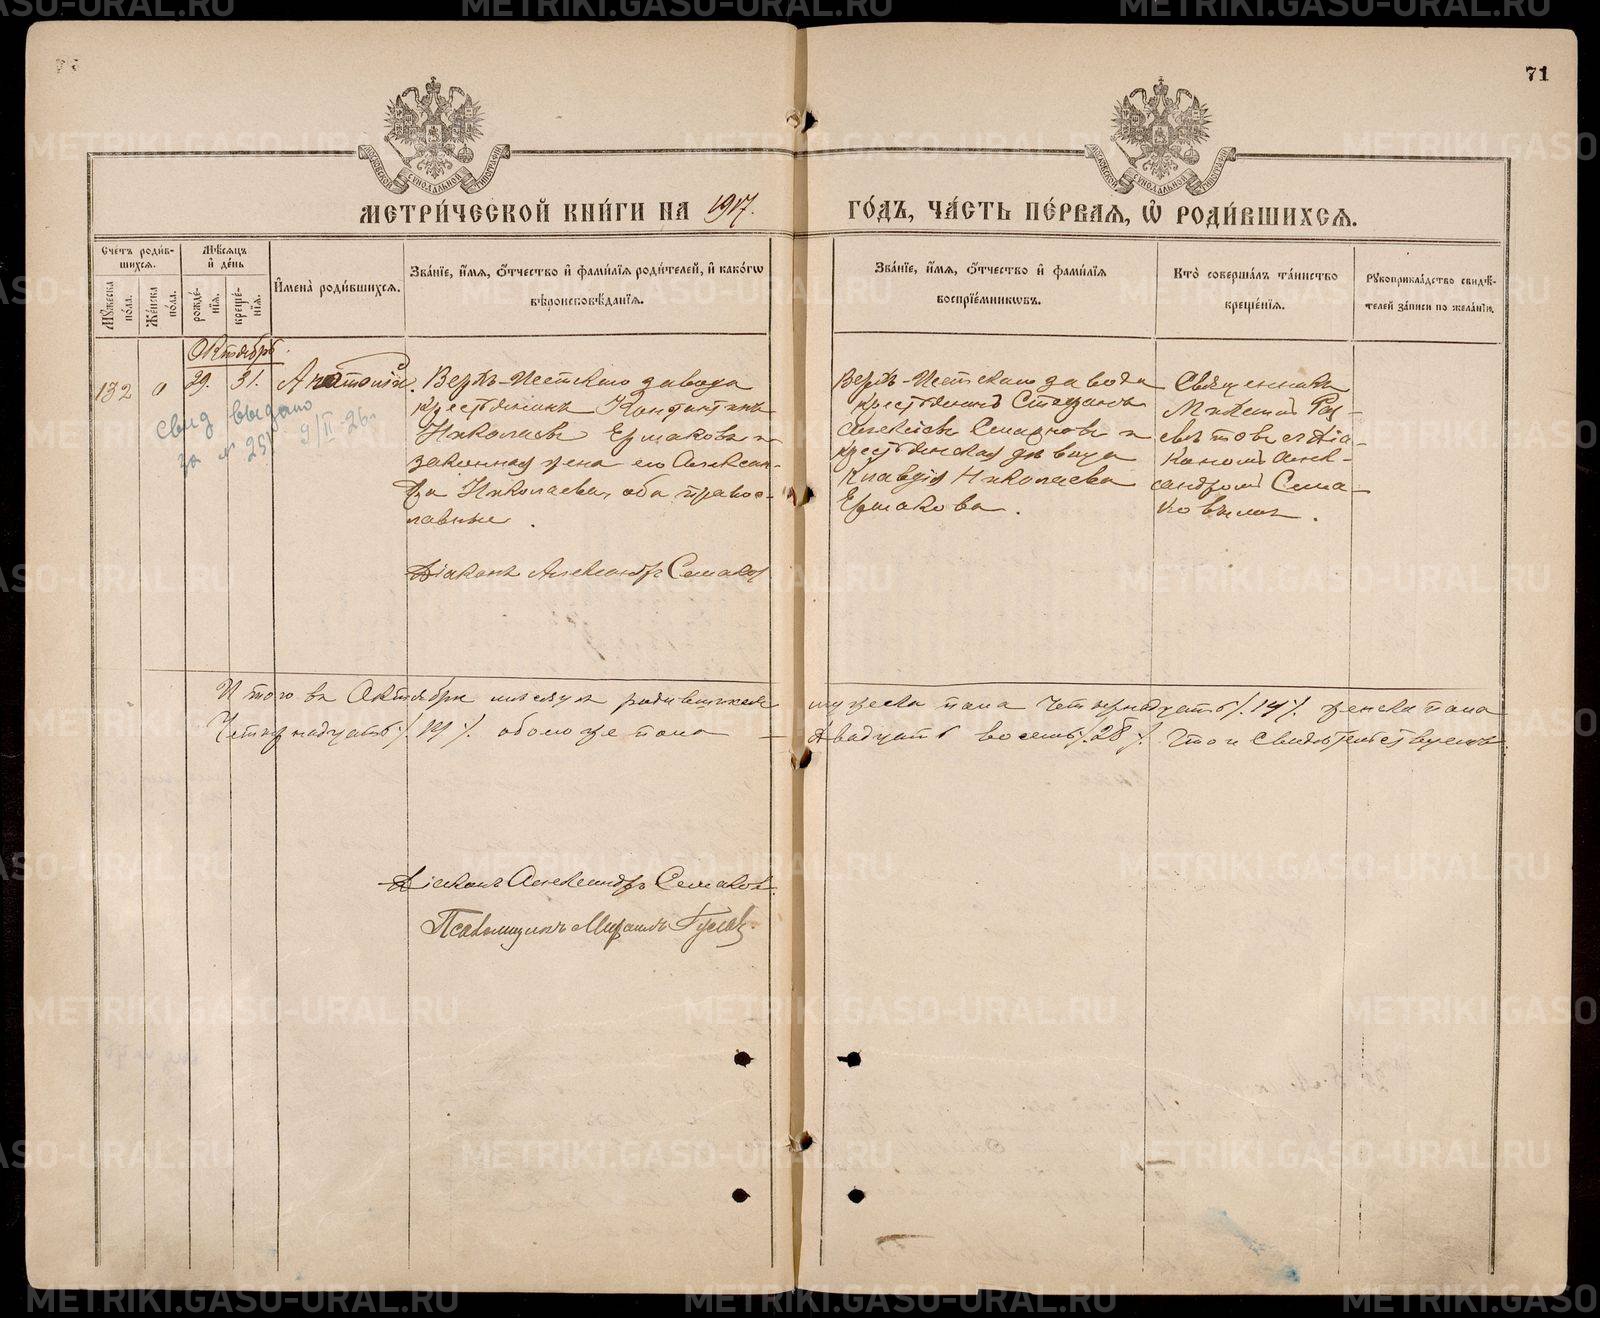 71
МОСКОВСКОЙ СѴНОДАЛЬНОЙ ТИПОГРАФІИ
МОСКОВСКОЙ СѴНОДАЛЬНОЙ ТИПОГРАФІИ
МЕТРИ́ЧЕСКОЙ КНИ́ГИ НА 1917. ГО́ДЪ, ЧА́СТЬ ПЕ́РВАѦ, Ѡ҆ РОДИ́ВШИХСѦ.
Сче́тъ роди́в-
шихсѧ.
Мꙋ́жеска
по́ла.
Же́нска
по́ла.
Мѣ́сѧцъ
и҆ де́нь
рожде́-
нїѧ.
креще́-
нїѧ.
И҆мена̀ роди́вшихсѧ.
Зва́нїе, и҆́мѧ, ѻ҆́тчество и҆ фами́лїѧ роди́телей, и҆ како́гѡ
вѣроисповѣ́данїѧ.
Зва́нїе, и҆́мѧ, ѻ҆́тчество и҆ фами́лїѧ
воспрїе́мникѡвъ.
Кто̀ соверша́лъ та́инство
креще́нїѧ.
Рꙋкоприкла́дство свидѣ́-
телей за́писи по жела́нїю.
Октябрь.
132 0 29. 31. Анатолій.
Верхъ-Исетскаго завода
крестьянинъ Константинъ
Николаевъ Ермаковъ и
законная жена его Алексан-
дра Николаева, оба правос-
лавные.
Діаконъ Александръ Семаковъ
Верхъ-Исетскаго завода
крестьянинъ Стефанъ
Алексіевъ Смирновъ и
крестьянская дѣвица
Клавдія Николаева
Ермакова.
Священникъ
Николай
съ Діа-
кономъ Алек-
сандромъ Сема-
ковымъ.
свид выдано
за № 251 9/II-26г
Итого въ Октябрѣ мѣсяцѣ родившихся мужеска пола Четырнадцать /.14/. женска пола
Четырнадцать /.14/. обоего же пола – Двадцать восемь /.28/. Что и свидѣтельствуемъ:
Діаконъ Александръ Семаковъ.
Псаломщикъ Михаилъ
METRIKI.GASO-URAL.RU